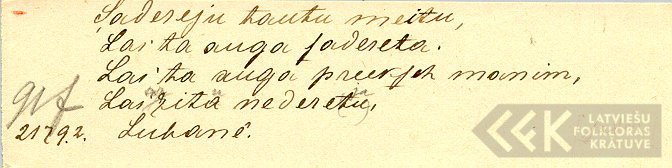 Sadereju tautu meitu,
Lai ta auga sadereta.
Lai ta auga preeksch manim,
Lai zita nedereta,
21792. Lubanē.
LATVIEŠU
FOLKLORAS
KRĀTUVE